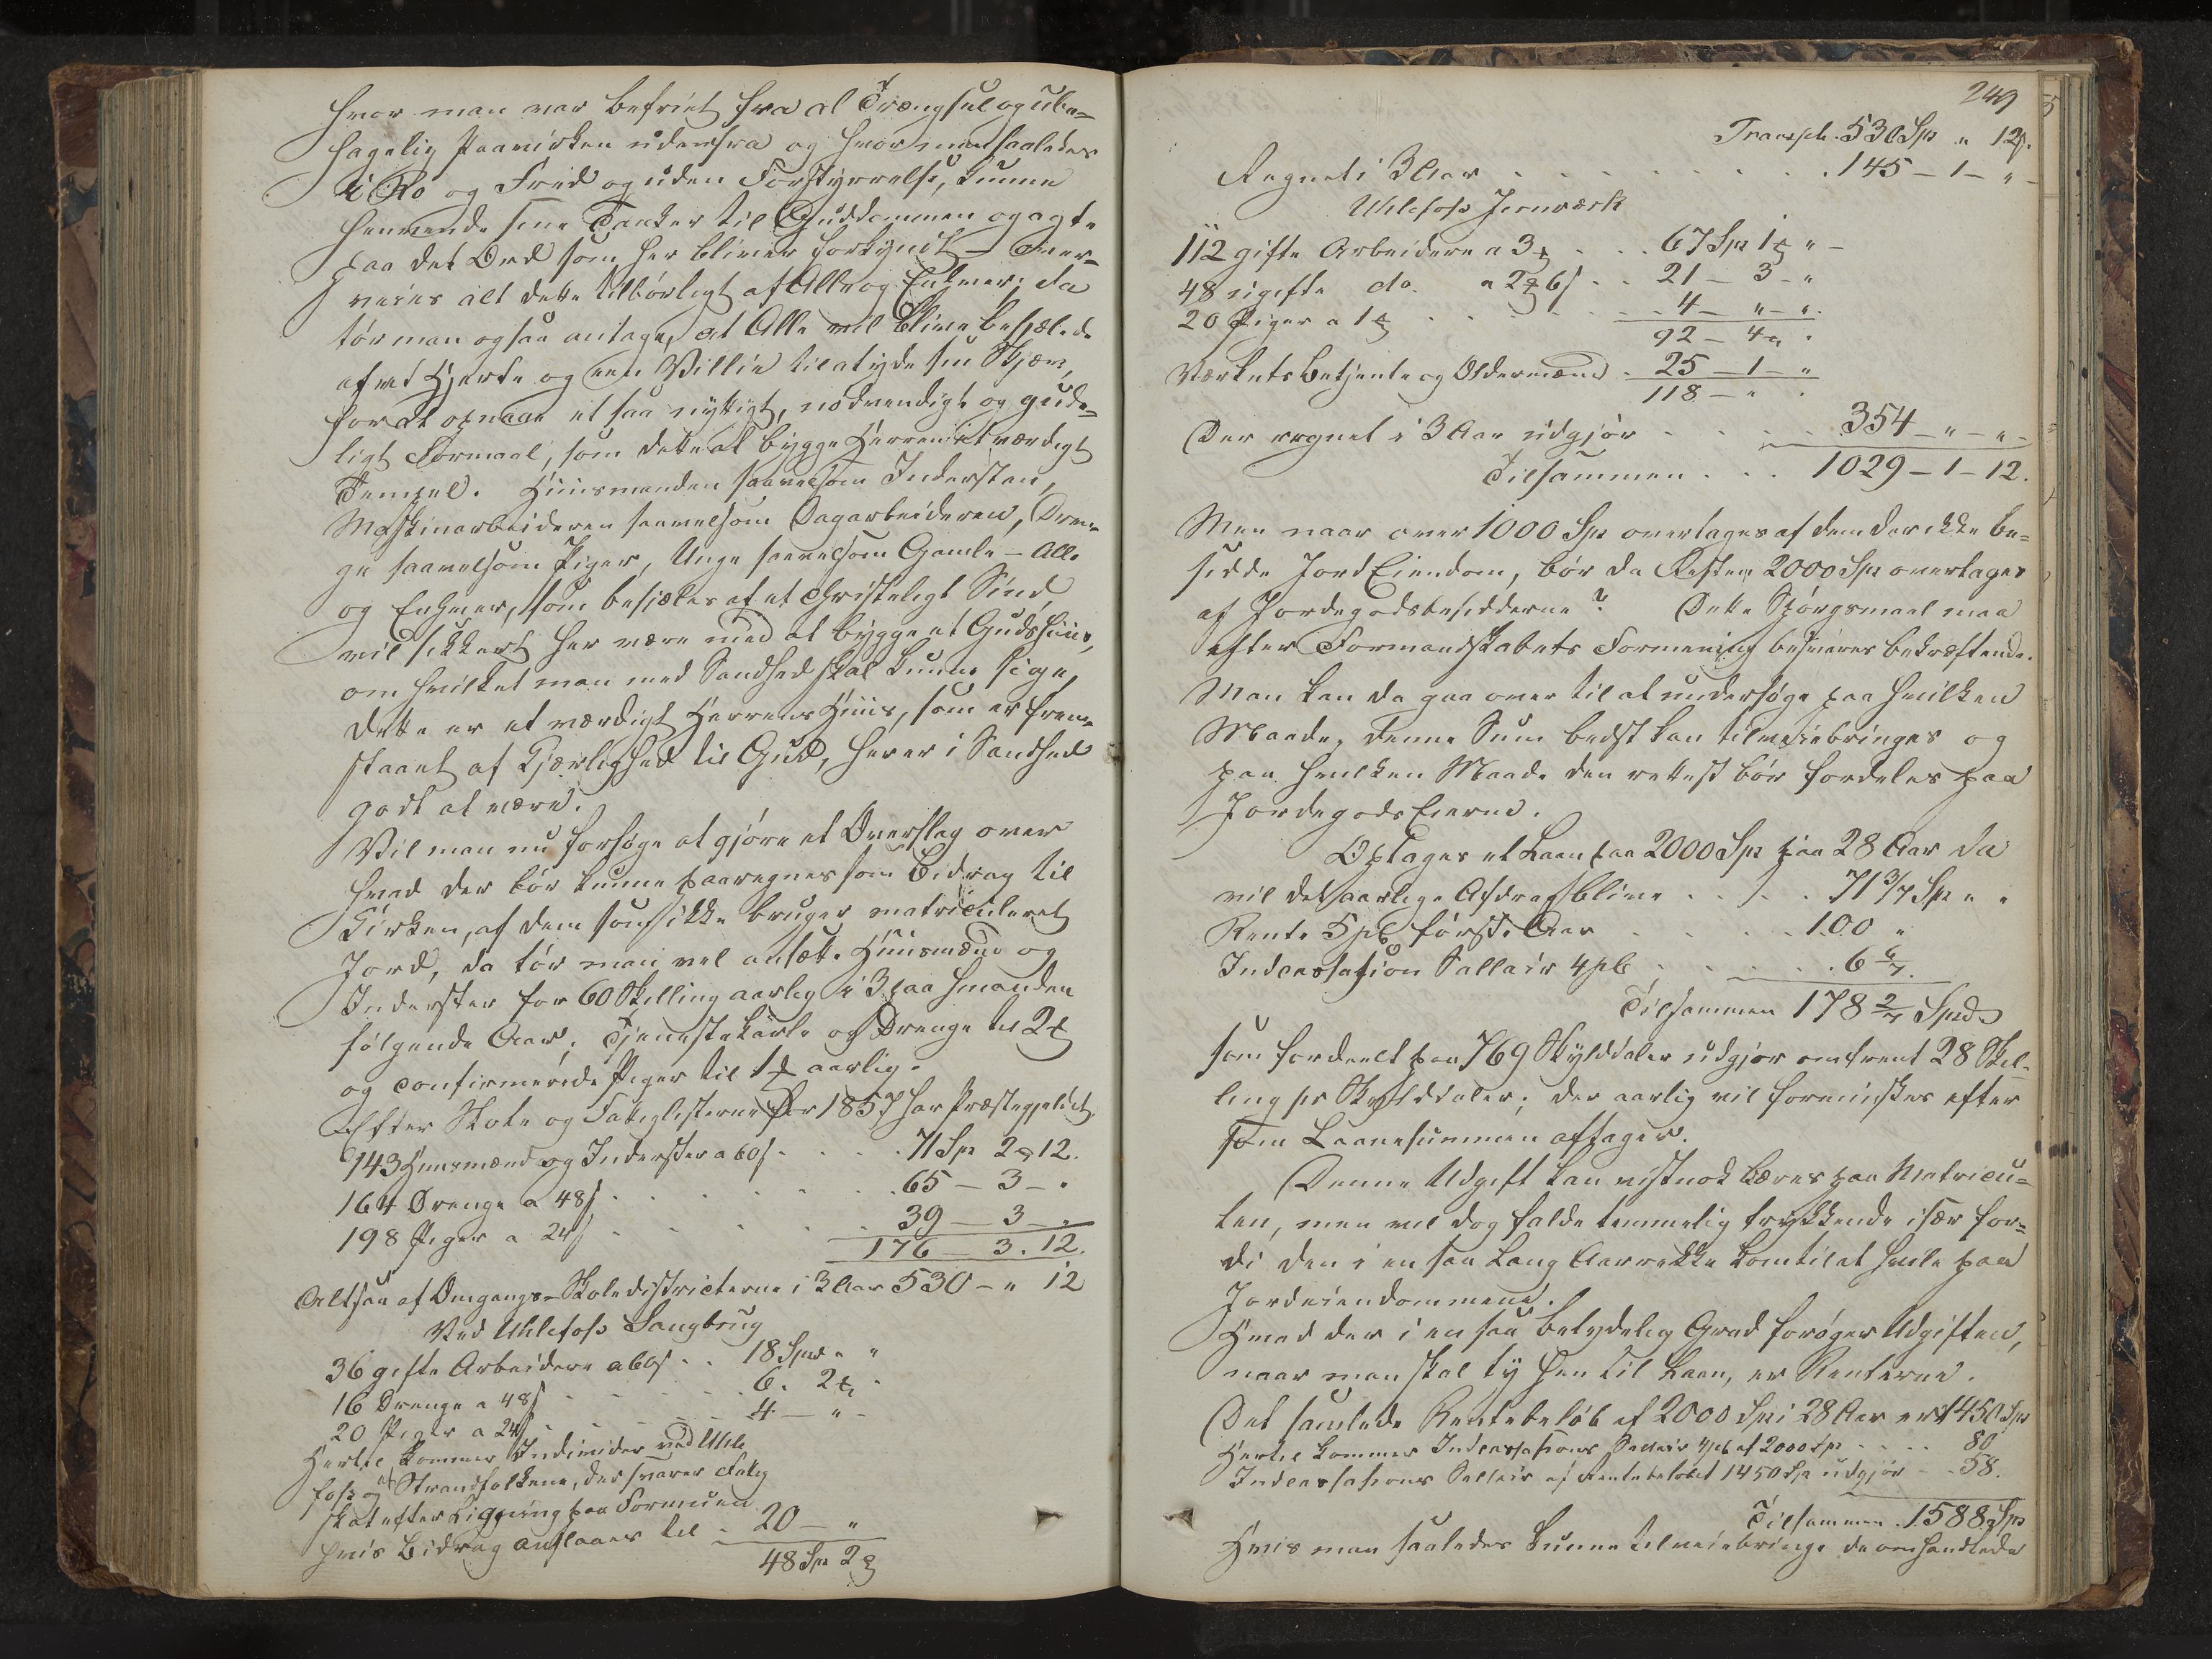 hvor man var befriet fra al Trængsel og ube-
hagelig Paavirken udenfra og hvor man saaledes
i Ro og Fred og uden Forstyrrelse, kunne
henvende sine Tanker til Guddommen og agte
paa det Ord som her bliver forkyndt – Over-
veies alt dette tilbørligt af Alle og Enhver; da
tør man ogsaa antage, at Alle vil blive besjælede
af et Hjerte og een Villie til at yde sin Skjærv,
for at opnaae et saa nyttigt, nødvendigt og gude-
ligt Formaal, som dette at bygge Herren et værdigt
Tempel. Huusmanden saavelsom Indersten,
Maskinarbeideren saavelsom Dagarbeideren, Dren-
ge saavelsom Piger, Unge saavelsom Gamle – Alle
og Enhver, som besjæles af et christeligt Sind
vil sikkert her være med at bygge et Guds huus,
om hvilket man med Sandhed skal kunne sige,
dette er et værdigt Herrens Huus, som er frem-
staaet af Kjærlighed til Gud, her er i Sandhed
godt at være.
Vil man nu forsøge at gjøre et Overslag over
hvad der bør kunne paaregnes som Bidrag til
Kirken, af dem som ikke bruger matriculeret
Jord, da tør man vel ansætte Huusmænd og
Inderster for 60 Skilling aarlig i 3 paa hinanden
følgende Aar; Tjenestekarle og Drenge til 2 ₰
og confirmerede Piger til 1 ₰ aarlig.
Efter Skole og Fatiglisterne for 1857 har Præstegjeldet,
143 Huusmænd og Inderster a 60 s . . . 71 Sp 2 ₰ 12.
164 Drenge a 48 s . . . . . 65 – 3 – "
198 Piger a 24 s . . . . . 39 – 3 – "
176 – 3 . 12.
Altsaa af Omgangs-Skoledistricterne i 3 Aar 530 – " 12
Ved Uhlefoss Saugbrug
36 gifte Arbeidere a 60 s . . 18 Spd " "
16 Drenge a 48 s . . . . 6. 2 ₰ "
20 Piger a 24 s . . . . 4 – " –
Hertil kommer Individer ved Uhle
foss og af Strandfolkene, der svarer Fatig
skat efter Ligning paa Formuen
hvis Bidrag anslaaes til . 20 – "
48 Sp 2 ₰
249
Transp. 530 Sp " 12 s.
Regnet i 3 Aar . . . . . . . 145 – 1 – " –
Uhlefoss Jernværk
112 gifte Arbeidere a 3 ₰ . . . 67 Sp 1 ₰ " –
48 ugifte do. a 2 ₰ 6 s . . 21 – 3 – "
20 Piger a 1 ₰ . . . . . 4 – " – ".
92 – 4 " .
Værkets Betjente og Oldermænd . 25 – 1 – "
118 – " .
Der regnet i 3 Aar udgjør . . . . 354 – " – " .
Tilsammen . . . 1029 – 1 – 12.
Men naar over 1000 Sp overtages af dem der ikke be-
sidde Jord Eiendom, bør da Resten 2000 Sp overtages
af Jordegodsbesidderne? Dette Spørgsmaal maa
efter Formandskabets Formening besvares bekræftende.
Man kan da gaa over til at undersøge paa hvilken
Maade, denne Sum bedst kan tilveiebringes og
paa hvilken Maade den rettest bør fordeles paa
Jordegods Eierne.
Optages et Laan paa 2000 Sp paa 28 Aar da
vil det aarlige Afdrag blive . . . . 71 3/7 Sp " "
Rente 5 pC første Aar . . . . 100 "
Indcassation Sallair 4 pC . . . . 6 6/7.
Tilsammen 178 2/7 Spd
som fordeelt paa 769 Skylddaler udgjør omtrent 28 Skil-
ling pr Skylddaler; der aarlig vil forminskes efter
som Laanesummen aftager.
Denne Udgift kan vistnok bæres paa Matricu-
len, men vil dog falde temmelig trykkende især for-
di den i en saa lang Aarrække kom til at hvile paa
Jordeiendommene.
Hvad der i en saa betydelig Grad forøger Udgiften,
naar man skal ty hen til Laan, er Renterne.
Det samlede Rentebeløb af 2000 Sp i 28 Aar er 1450 Sp
Hertil kommer Indcassations Sallair 4 pC af 2000 Sp . . . 80
Indcassations Sallair af Rentebeløbet 1450 Sp udgjør . . 58.
Tilsammen . 1588 Sp
Hvis man saaledes kunne tilveiebringe de omhandlede